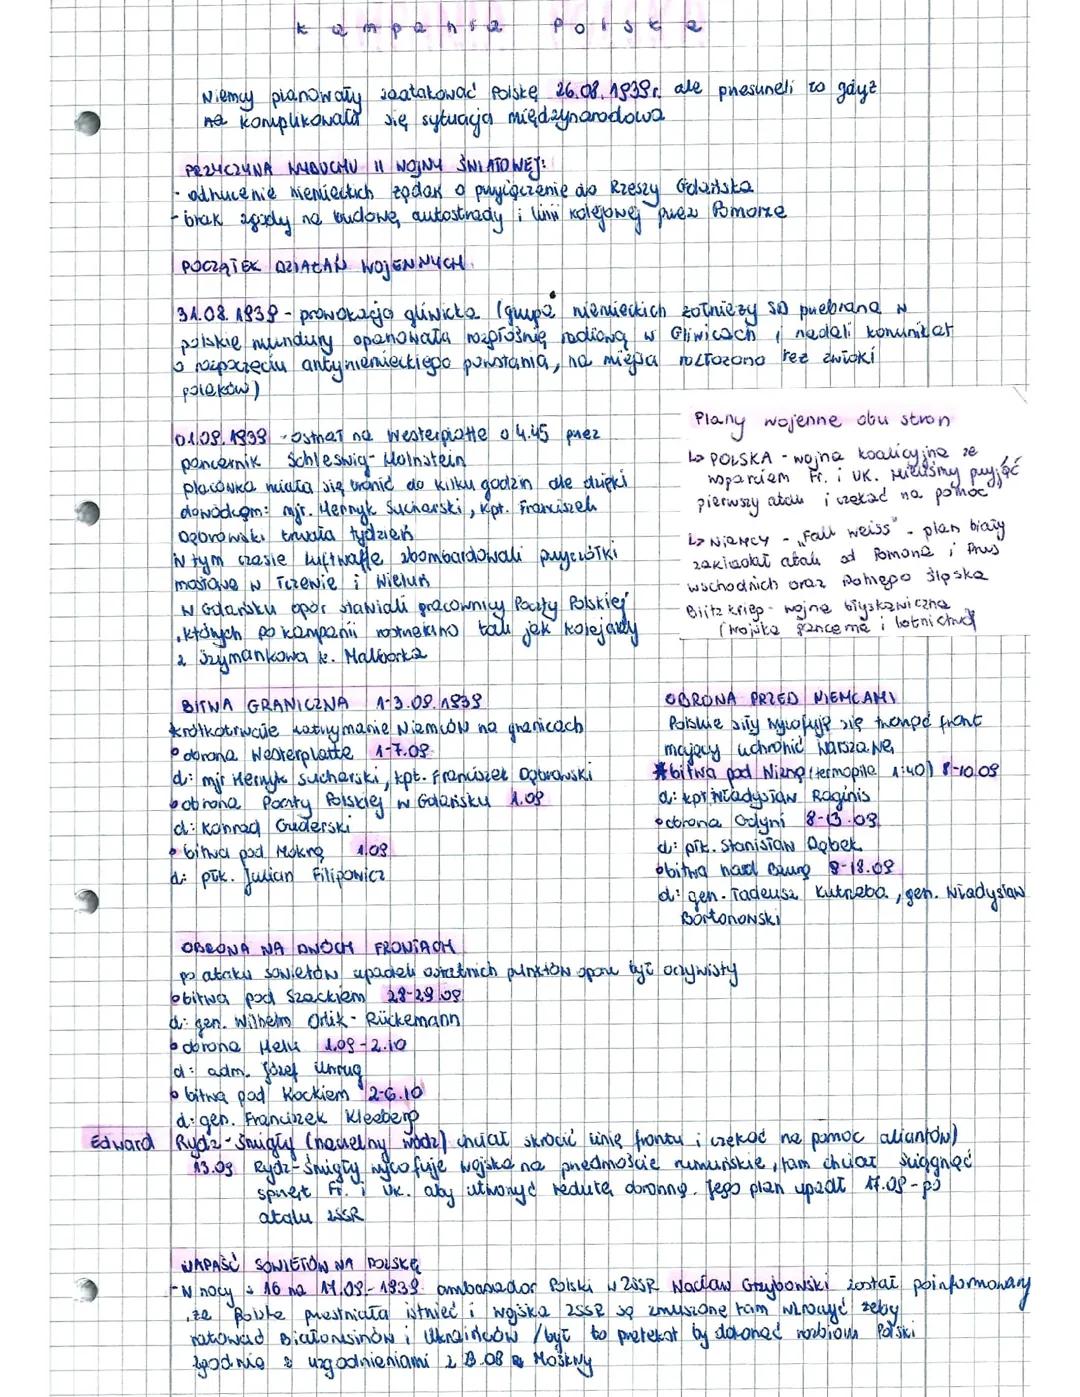 Kampania Polska
Niemcy planowały zaatakować Polskę 26.08.1939r. ale przesuneli to gdyż
na komplikowała się sytuacja międzynarodowa
PRZYCZYNA WYBUCHU II WOJNY ŚWIATOWEJ:
- odrzucenie niemieckich żądań o przyłączenie do Rzeszy Gdańska
- brak zgody na budowę autostrady i linii kolejowej przez Pomorze
POCZĄTEK DZIAŁAŃ WOJENNYCH
31.08.1939 - prowokacja gliwicka (grupa niemieckich żołnieży SD przebrana w
polskie mundury opanowała rozgłośnię radiową w Gliwicach i nadali komunikat
o rozpoczęciu antyniemieckiego powstania, na miejsca rozłożono też zwłoki
polaków)
01.09.1939 - ostrzał na Westerplatte o 4.45 przez
pancernik Schleswig-Holnstein
placówka miała się bronić do kilku godzin ale dzięki
dowódcom: mjr. Henryk Sucharski, kpt. Franciszek
Dąbrowski trwała tydzień
W tym czasie Luftwaffe zbombardowali przyczółki
mostowe w Tczewie i Wieluń
W Gdańsku opór stawiali pracownicy Poczty Polskiej
, których po kampanii rozstrzelano tak jak kolejarzy
z Szymankowa k. Malborka
Plany wojenne obu stron
↳ POLSKA - wojna koalicyjna ze
wsparciem Fr. i UK. Mieliśmy przyjąć
pierwszy atak i czekać na pomoc
↳ NIEMCY - „Fall weiss" - plan biały
zakładał atak od Pomorza i Prus
wschodnich oraz Górnego Śląska
Blitzkrieg - wojna błyskawiczna
(wojska pancerne i lotnictwo)
BITWA GRANICZNA 1-3.09.1939
krótkotrwałe zatrzymanie Niemców na granicach
• obrona Westerplatte 1-7.09
d: mjr Henryk Sucharski, kpt. Franciszek Dąbrowski
• obrona Poczty Polskiej w Gdańsku 1.09
d: Konrad Guderski
• bitwa pod Mokrą 1.09
d: płk. Julian Filipowicz
OBRONA PRZED NIEMCAMI
Polskie siły wycofują się tworząc front
mający uchronić Warszawę
* bitwa pod Wizną (termopile 1:40) 8-10.09
d: kpt. Władysław Raginis
• obrona Gdyni 8-13.09
d: płk. Stanisław Dąbek
• bitwa nad Bzurą 9-18.09
d: gen. Tadeusz Kutrzeba, gen. Władysław
Bortonowski
OBRONA NA DWÓCH FRONTACH
po ataku sowietów upadek ostatnich punktów oporu był oczywisty
• bitwa pod Szackiem 28-29.09
d: gen. Wilhelm Orlik-Rückemann
• obrona Helu 1.09-2.10
d: adm. Józef Unrug
• bitwa pod Kockiem 2-6.10
d: gen. Franciszek Kleeberg
Edward Rydz-Śmigły (naczelny wódz) chciał skrócić linię frontu i czekać na pomoc aliantów)
13.09 Rydz-Śmigły wycofuje wojska na przedmoście rumuńskie, tam chciał ściągnąć
sprzęt Fr. i UK. aby utworzyć redutę obronną. Jego plan upadł 17.09 - po
ataku ZSSR
NAPAŚĆ SOWIETÓW NA POLSKĘ
- W nocy z 16 na 17.09.1939 ambasador Polski w ZSSR Wacław Grzybowski został poinformowany
, że Polska przestała istnieć i wojska ZSSR są zmuszone tam wkroczyć żeby
ratować Białorusinów i Ukraińców / był to pretekst by dokonać rozbioru Polski
zgodnie z uzgodnieniami z 23.08 z Moskwy